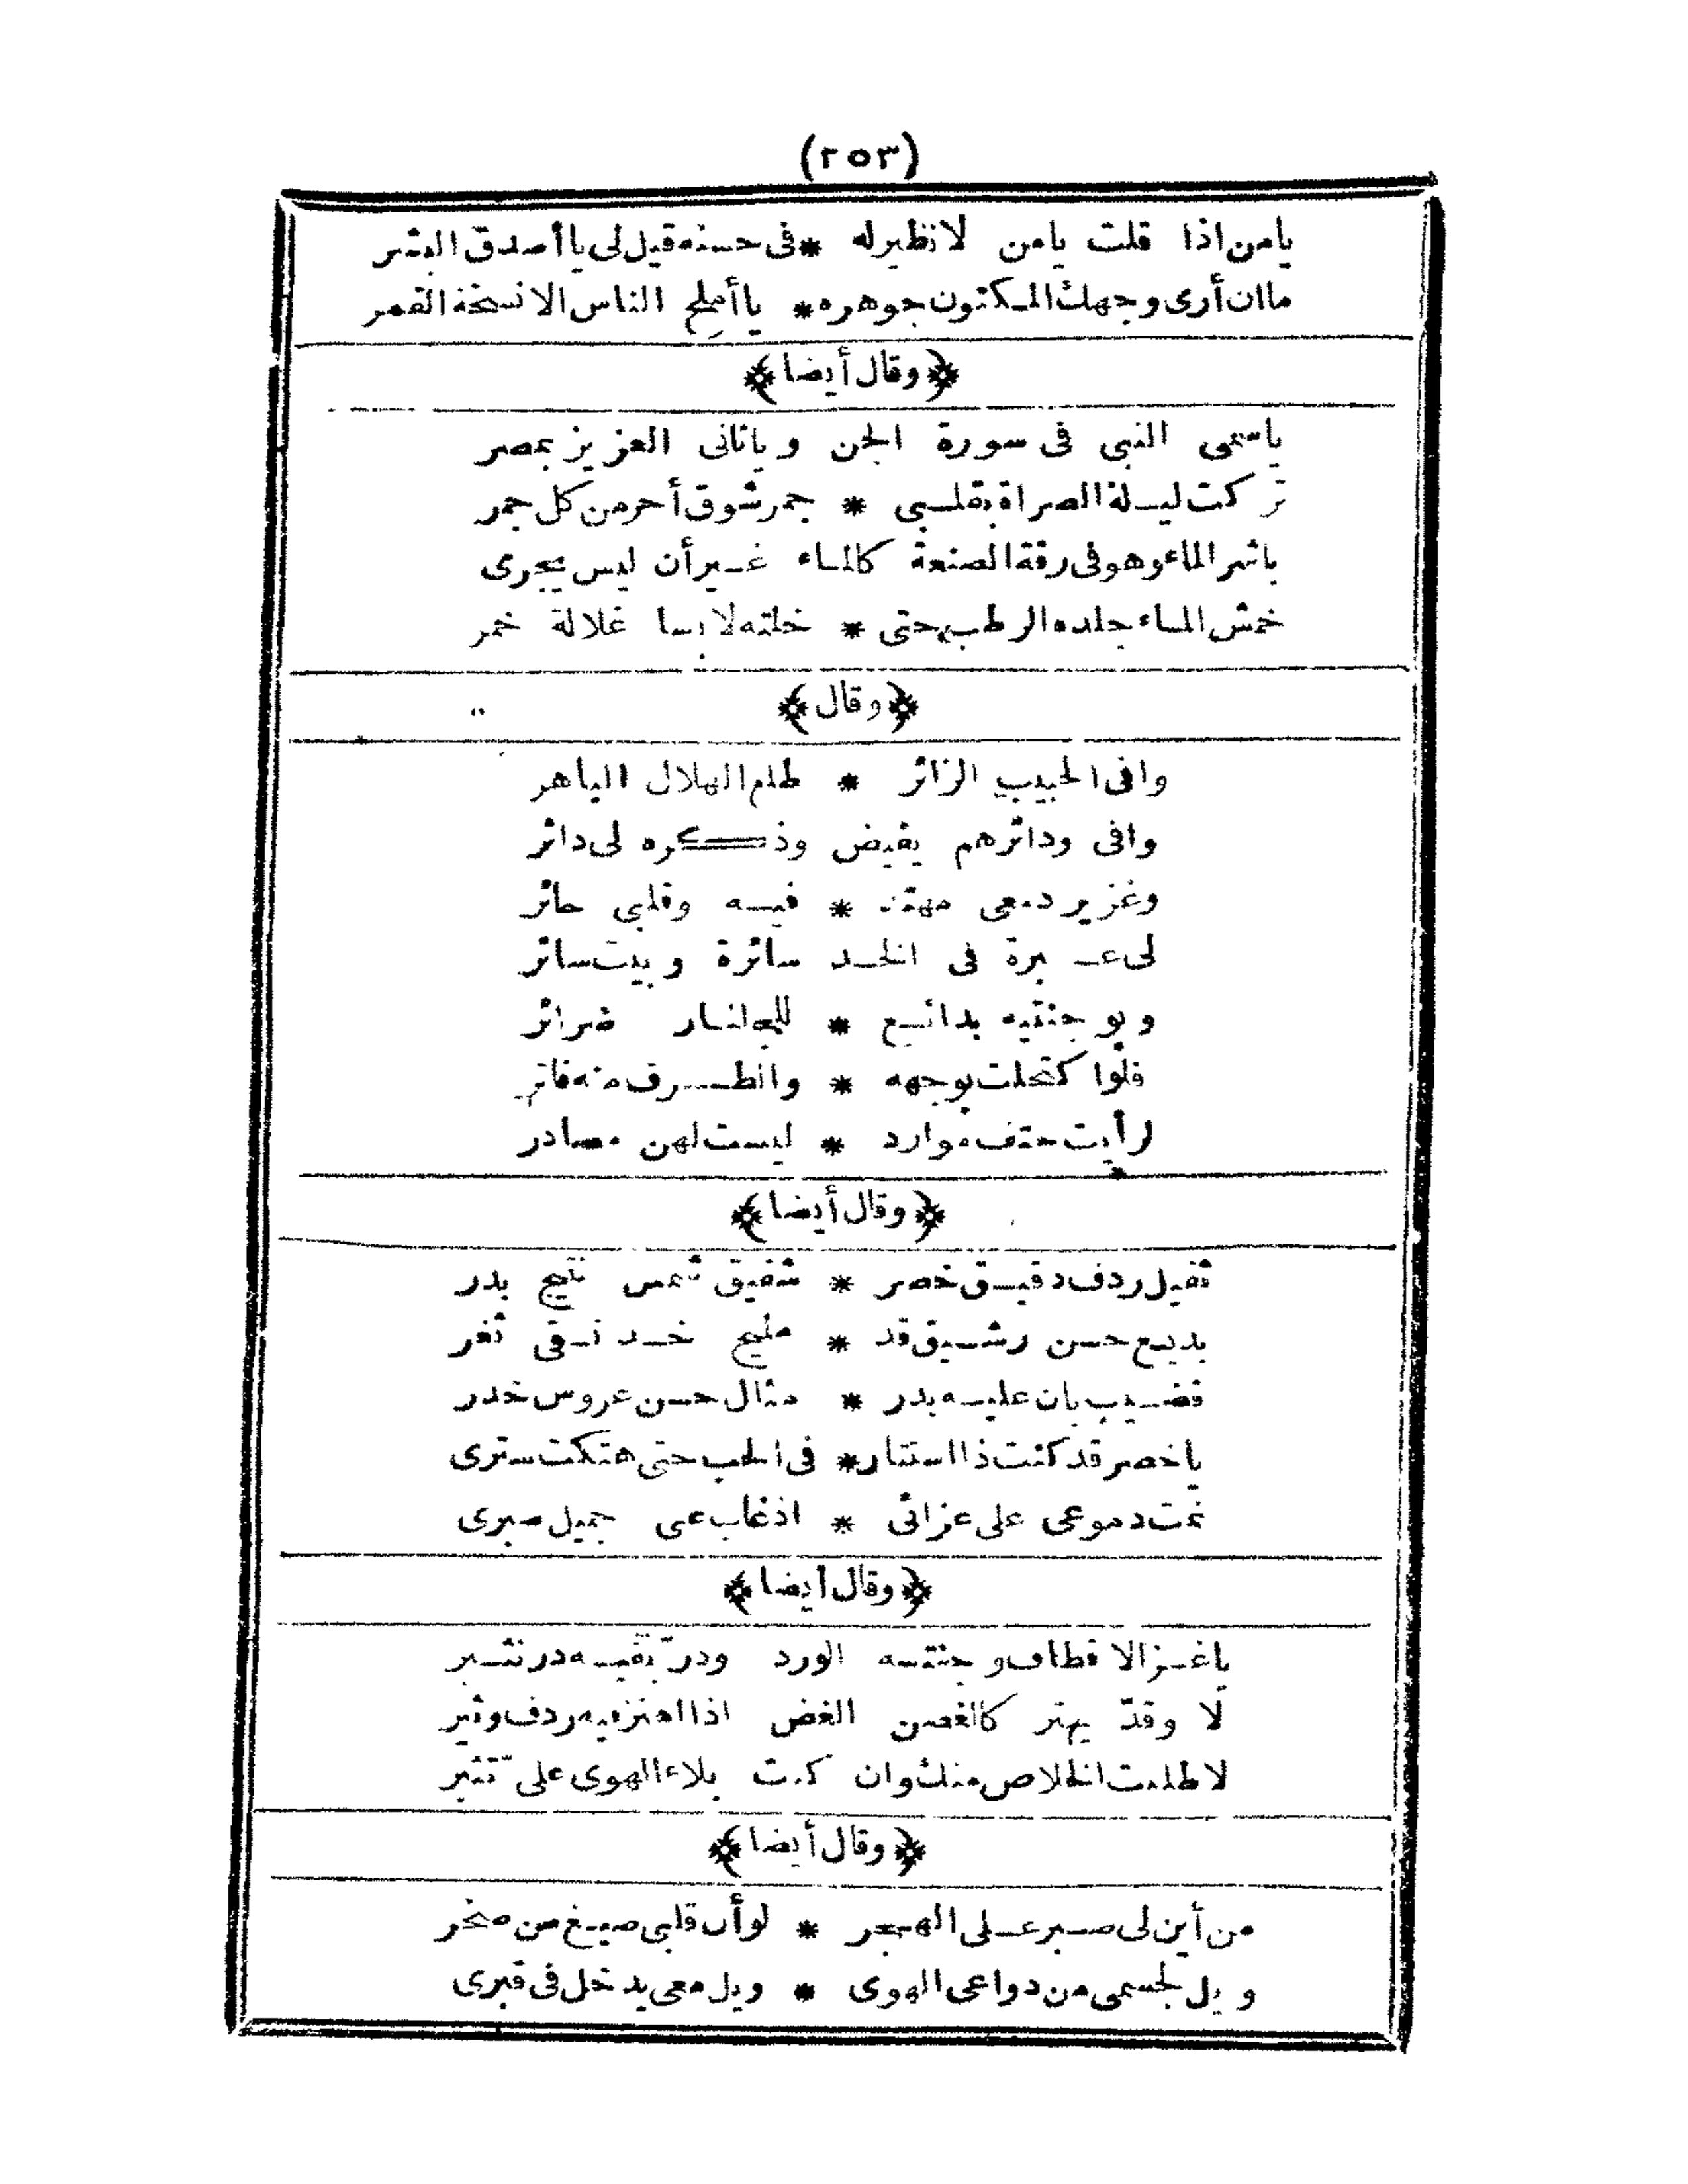 (٢٥٣)
يامن اذا قلت يامن لانظيرله * فى حسنه قيل لى يا أصدق البشر
ماان أرى وجهك المكنون جوهره * يا أملح الناس الا نسخة القمر
﴿وقال أيضا﴾
ياسمى النبى فى سورة الجن وياثانى العزيز بمصر
تركت ليلة الصراة بقلبى * جمر شوق أحر من كل جمر
باشر الماء وهو فى رقة الصنعة كالماء غير أن ليس يجرى
خمش الماء جلده الرطب حتى * خلته لابسا غلالة خمر
﴿وقال﴾
وافى الحبيب الزائر * طلع الهلال الباهر
وافى ودائرهم يفيض وذكره لى دائر
وغزير دمعى مهتد * فيه وقلبى حائر
لى عبرة فى الخد سائرة وبيت سائر
وبوجنتيه بدائع * للجلنار ضرائر
فلو اكتحلت بوجهه * والطرف منه فاتر
لرأيت حتف موارد * ليست لهن مصادر
﴿وقال أيضا﴾
ثقيل ردف دقيق خصر * شقيق شمس نتيج بدر
بديع حسن رشيق قد * مليح خد نقى ثغر
قضيب بان عليه بدر * مثال حسن عروس خدر
ياخصر قد كنت ذا استتار * فى الحب حتى هتكت سترى
نمت دموعى على عزائى * اذ غاب عنى جميل صبرى
﴿وقال أيضا﴾
ياغزالا قطاف وجنتيه الورد ودر بفيه در نثير
لا وقدّ يهتز كالغصن الغض اذا اهتز فيه ردف وثير
لاطلبت الخلاص منك وان كنت بلاء الهوى علىّ تثير
﴿وقال أيضا﴾
من أين لى صبر على الهجر * لو أن قلبى صيغ من صخر
ويل لجسمى من دواعى الهوى * ويل معى يدخل فى قبرى